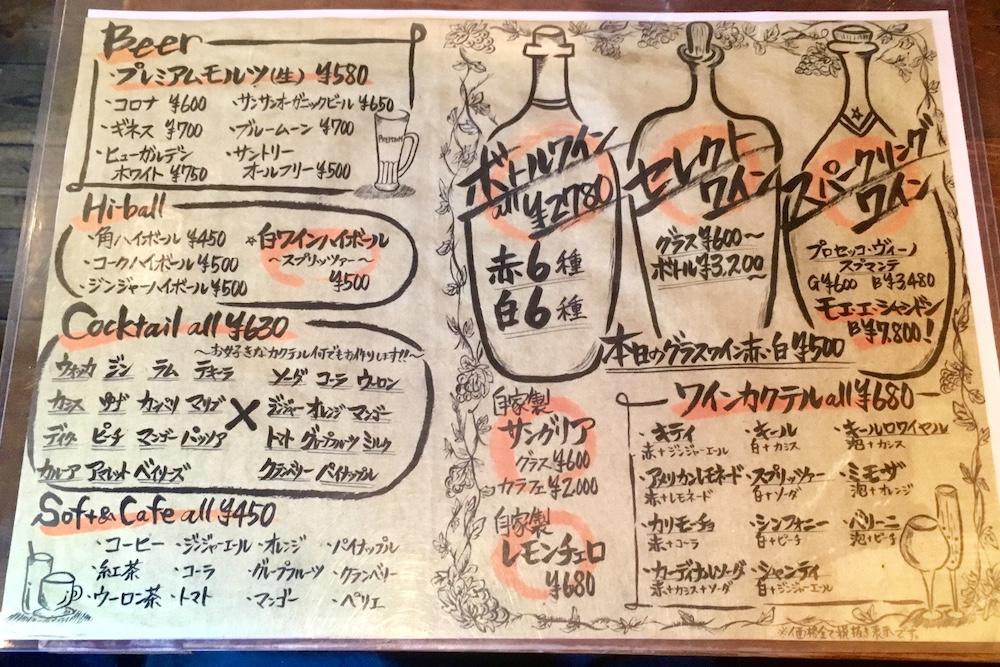 Beer
・プレミアムモルツ(生) ¥580
・コロナ ¥600 ・サンサンオーガニックビール ¥650
・ギネス ¥700 ・ブルームーン ¥700
・ヒューガルデン ・サントリー
ホワイト ¥750 オールフリー ¥500
Hi-ball
・角ハイボール ¥450
・コークハイボール ¥500
・ジンジャーハイボール ¥500
☆白ワインハイボール
〜スプリッツァー〜
¥500
Cocktail all ¥630
〜お好きなカクテル何でもお作りします!!〜
ウォッカ ジン ラム テキーラ
カシス ゆず カンパリ マリブ
ディタ ピーチ マンゴー パッソア
カルーア アマレット ベイリーズ
×
ソーダ コーラ ウーロン
ジンジャー オレンジ マンゴー
トマト グレープフルーツ ミルク
クランベリー パイナップル
Soft & Cafe all ¥450
・コーヒー ・ジンジャーエール ・オレンジ ・パイナップル
・紅茶 ・コーラ ・グレープフルーツ ・クランベリー
・ウーロン茶 ・トマト ・マンゴー ・ペリエ
ボトルワイン
all ¥2780
赤6種
白6種
セレクト
ワイン
グラス ¥600〜
ボトル ¥3,200〜
スパークリング
ワイン
プロセッコ・ヴィーノ
スプマンテ
G¥600 B¥3480
モエ・エ・シャンドン
B¥7,800!
本日のグラスワイン赤・白 ¥500
自家製
サングリア
グラス ¥600
カラフェ ¥2,000
自家製
レモンチェロ
¥680
ワインカクテル all ¥680
・キティ ・キール ・キールロワイヤル
赤+ジンジャーエール 白+カシス 泡+カシス
・アメリカンレモネード ・スプリッツァー ・ミモザ
赤+レモネード 白+ソーダ 泡+オレンジ
・カリモーチョ ・シンフォニー ・ベリーニ
赤+コーラ 白+ピーチ 泡+ピーチ
・カーディナルソーダ ・シャンティ
赤+カシス+ソーダ 白+ジンジャーエール
※価格全て税抜き表示です。